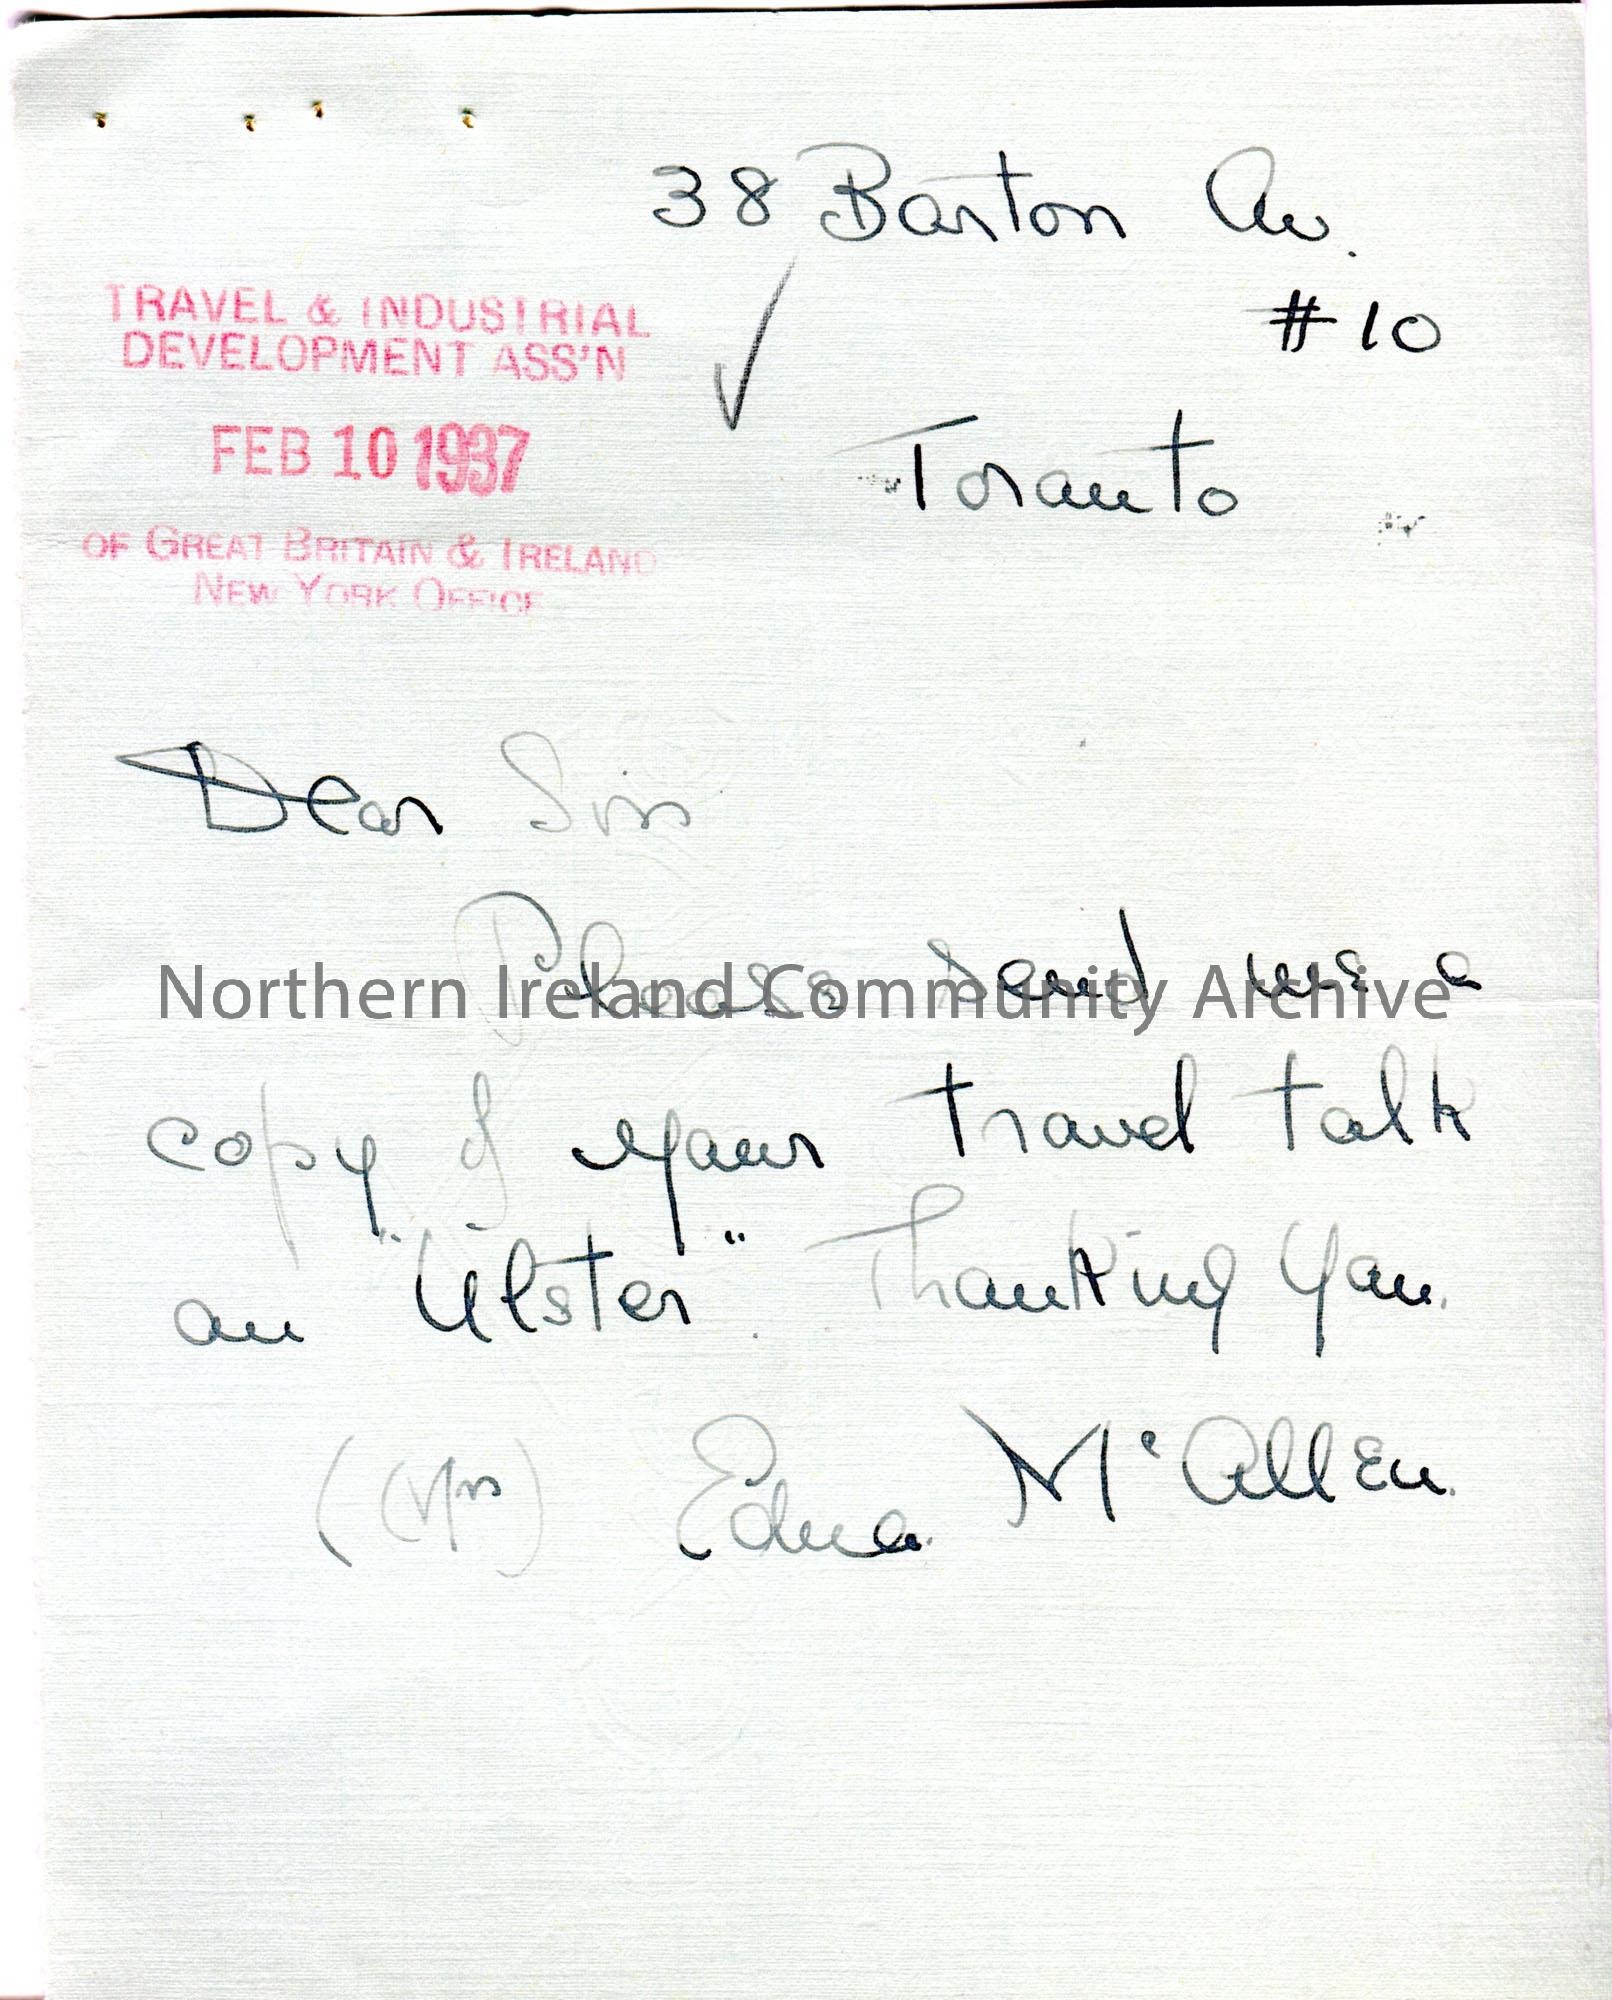 38 Barton Av.
#10
Toronto
TRAVEL & INDUSTRIAL
DEVELOPMENT ASS'N
FEB 10 1937
OF GREAT BRITAIN & IRELAND
NEW YORK OFFICE
Dear Sirs
Please send me a
copy of your travel talk
on "Ulster". Thanking you.
(Mrs) Edna. McAllen.
Northern Ireland Community Archive